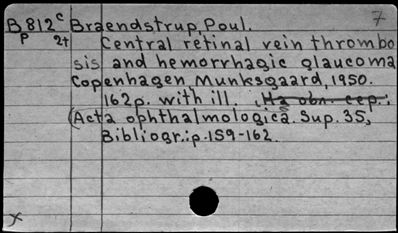 7
B 812 c Braendstrup, Poul.
p 2t Central retinal vein thrombo
sis and hemorrhagic glaucoma
Copenhagen, Munksgaard, 1950.
162p. with ill. На обл. сер.:
(Acta ophthalmologica. Sup. 35,
Bibliogr.: p. 159-162.
x